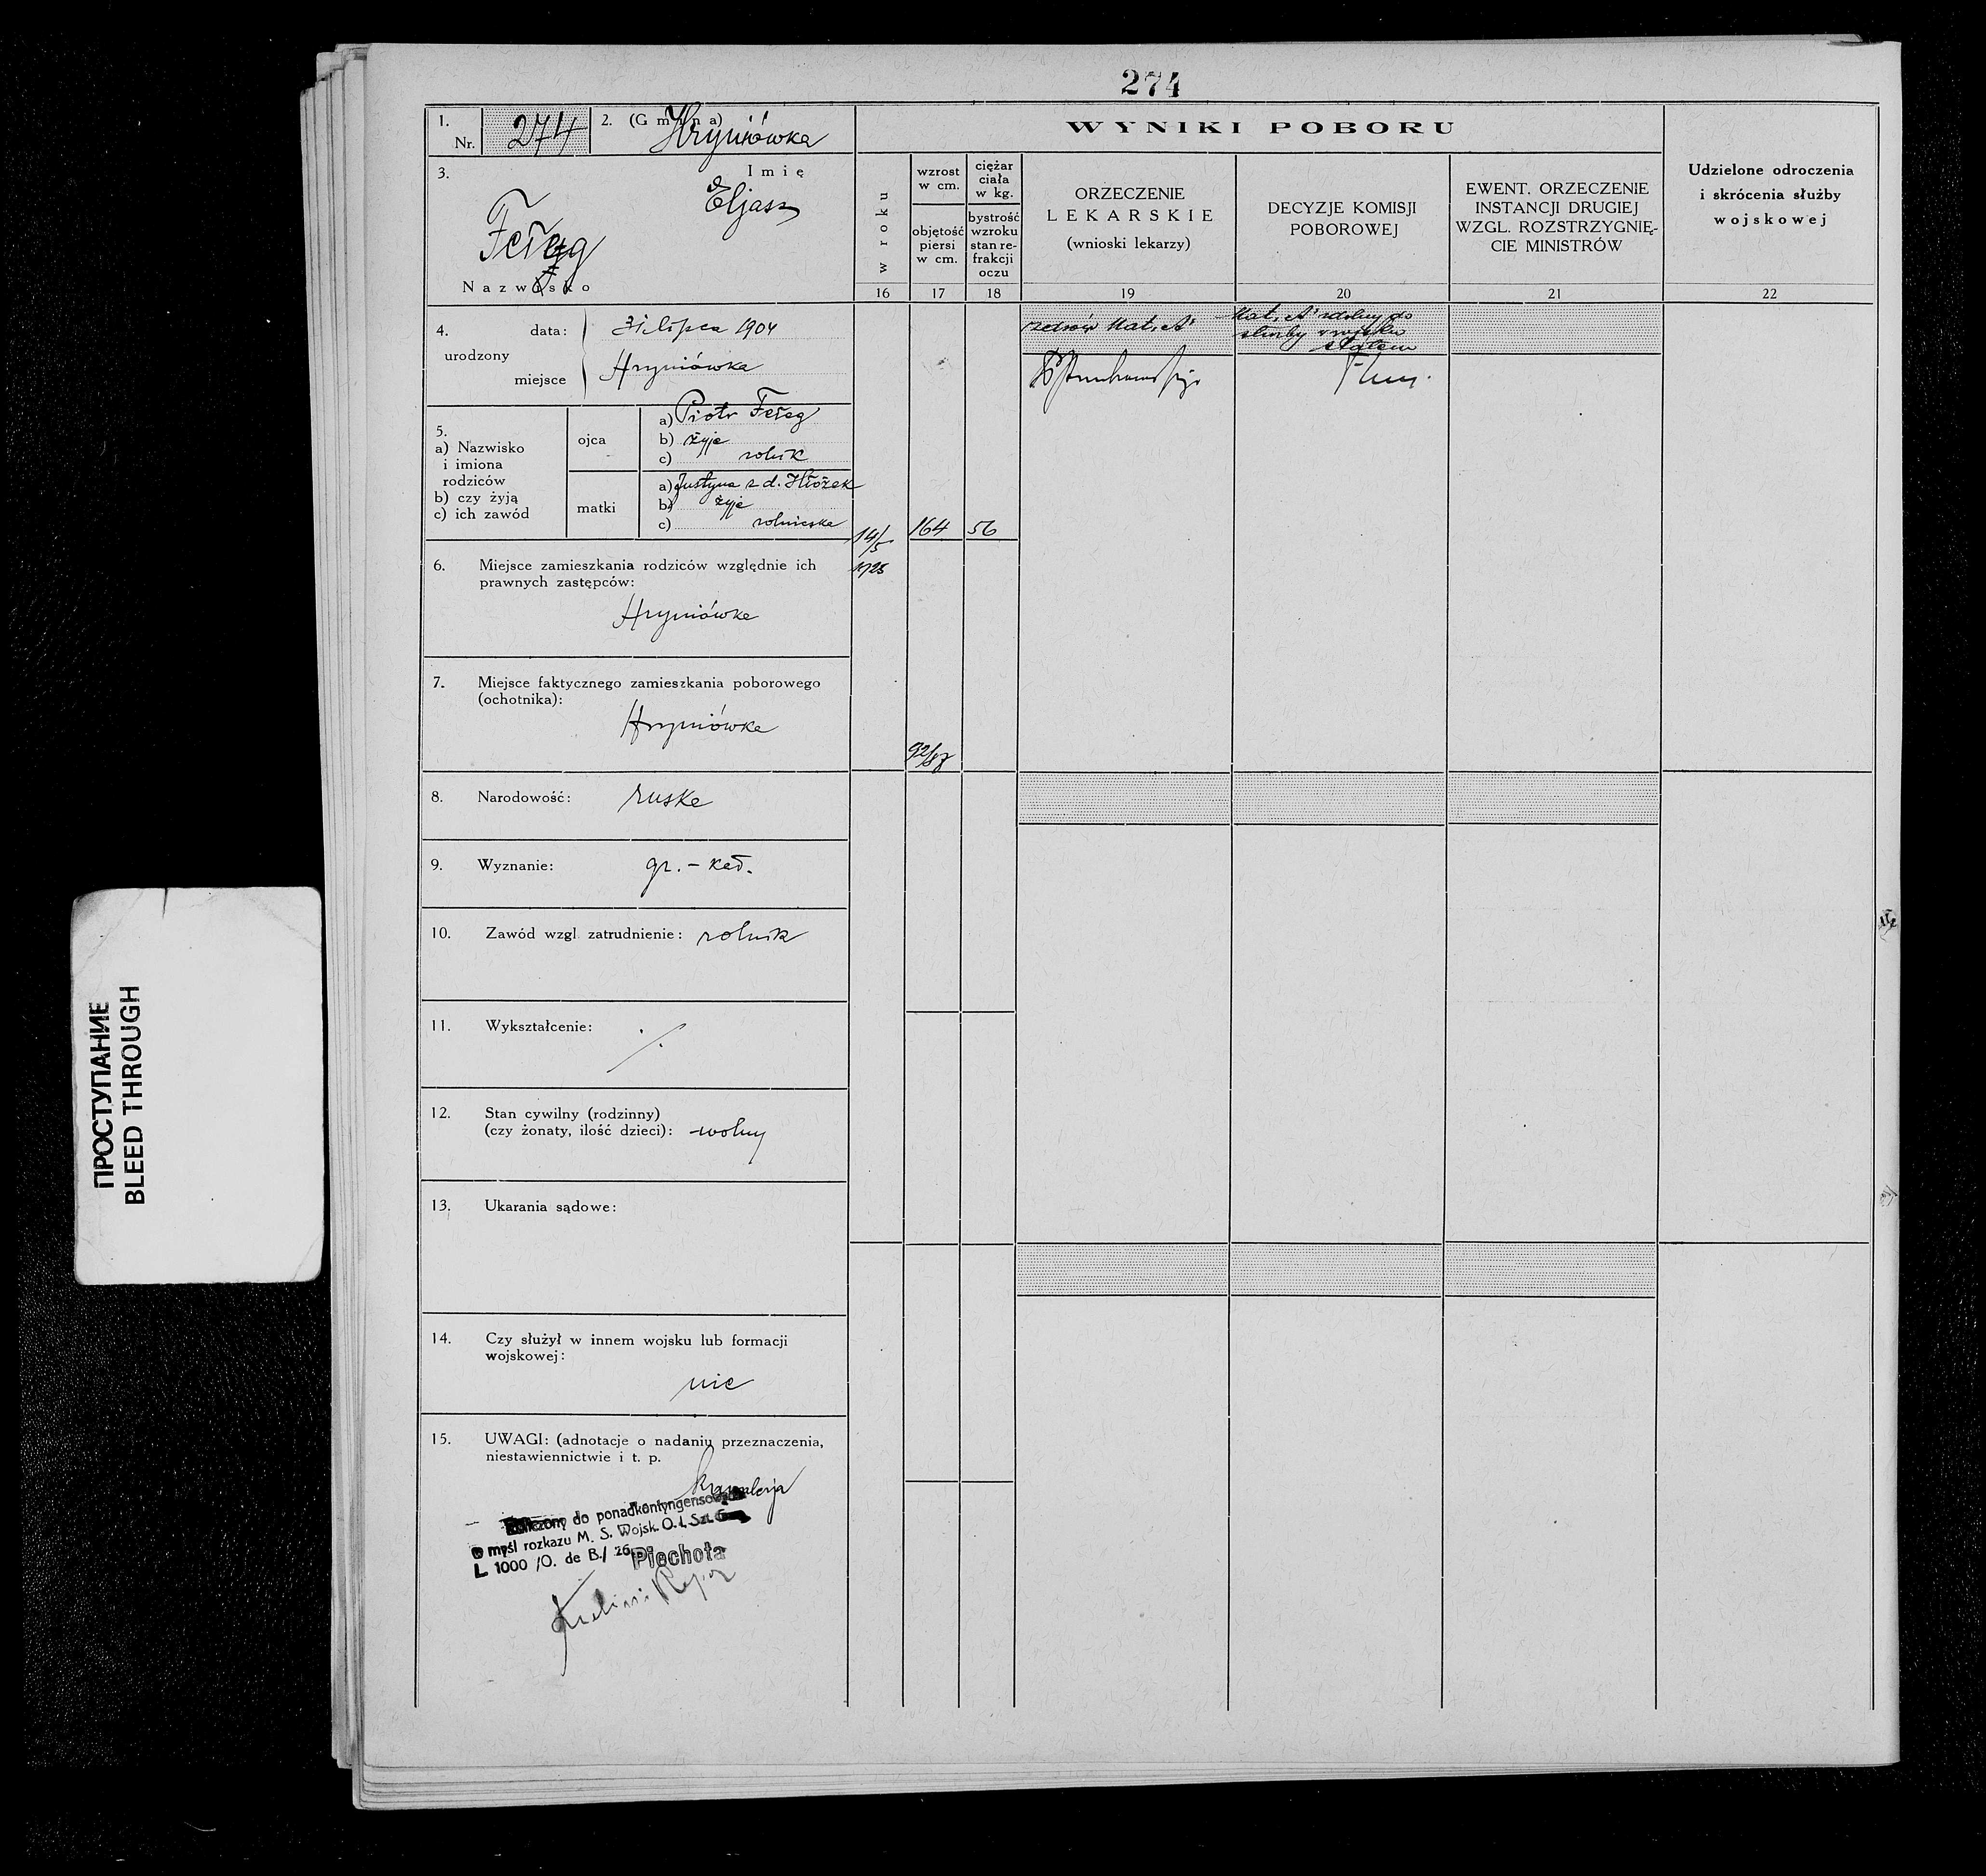 274
1.
Nr. 274
2. (Gmina) Hryniówka
3.
Imię
Eljasz
Feleg
Nazwisko
4. urodzony
data: 31 lipca 1904
miejsce Hryniówka
5.
a) Nazwisko
i imiona
rodziców
b) czy żyją
c) ich zawód
ojca
a) Piotr Feleg
b) żyje
c) rolnik
matki
a) Justyna z d.
b) żyje
c) rolniczka
6. Miejsce zamieszkania rodziców względnie ich
prawnych zastępców:
Hryniówka
7. Miejsce faktycznego zamieszkania poborowego
(ochotnika):
Hryniówka
8. Narodowość: ruska
9. Wyznanie: gr.-kat.
10. Zawód wzgl. zatrudnienie: rolnik
11. Wykształcenie: ./.
12. Stan cywilny (rodzinny)
(czy żonaty, ilość dzieci): wolny
13. Ukarania sądowe:
14. Czy służył w innem wojsku lub formacji
wojskowej:
nie
15. UWAGI: (adnotacje o nadaniu przeznaczenia,
niestawiennictwie i t. p.
Kawalerja
do ponadkontyngensowych
w myśl rozkazu M. S. Wojsk. O. I. Szt. G.
L 1000 /O. de B./ 26
Piechota
WYNIKI POBORU
w roku
16
wzrost
w cm.
objętość
piersi
w cm.
17
ciężar
ciała
w kg.
bystrość
wzroku
stan re-
frakcji
oczu
18
ORZECZENIE
LEKARSKIE
(wnioski lekarzy)
19
DECYZJE KOMISJI
POBOROWEJ
20
EWENT. ORZECZENIE
INSTANCJI DRUGIEJ
WZGL. ROZSTRZYGNIĘ-
CIE MINISTRÓW
21
Udzielone odroczenia
i skrócenia służby
wojskowej
22
14/5
1925
164
56
92/87
zdrów Kat. "A"
Kat. "A" zdolny do
służby w wojsku
stałem
ПРОСТУПАНИЕ
BLEED THROUGH